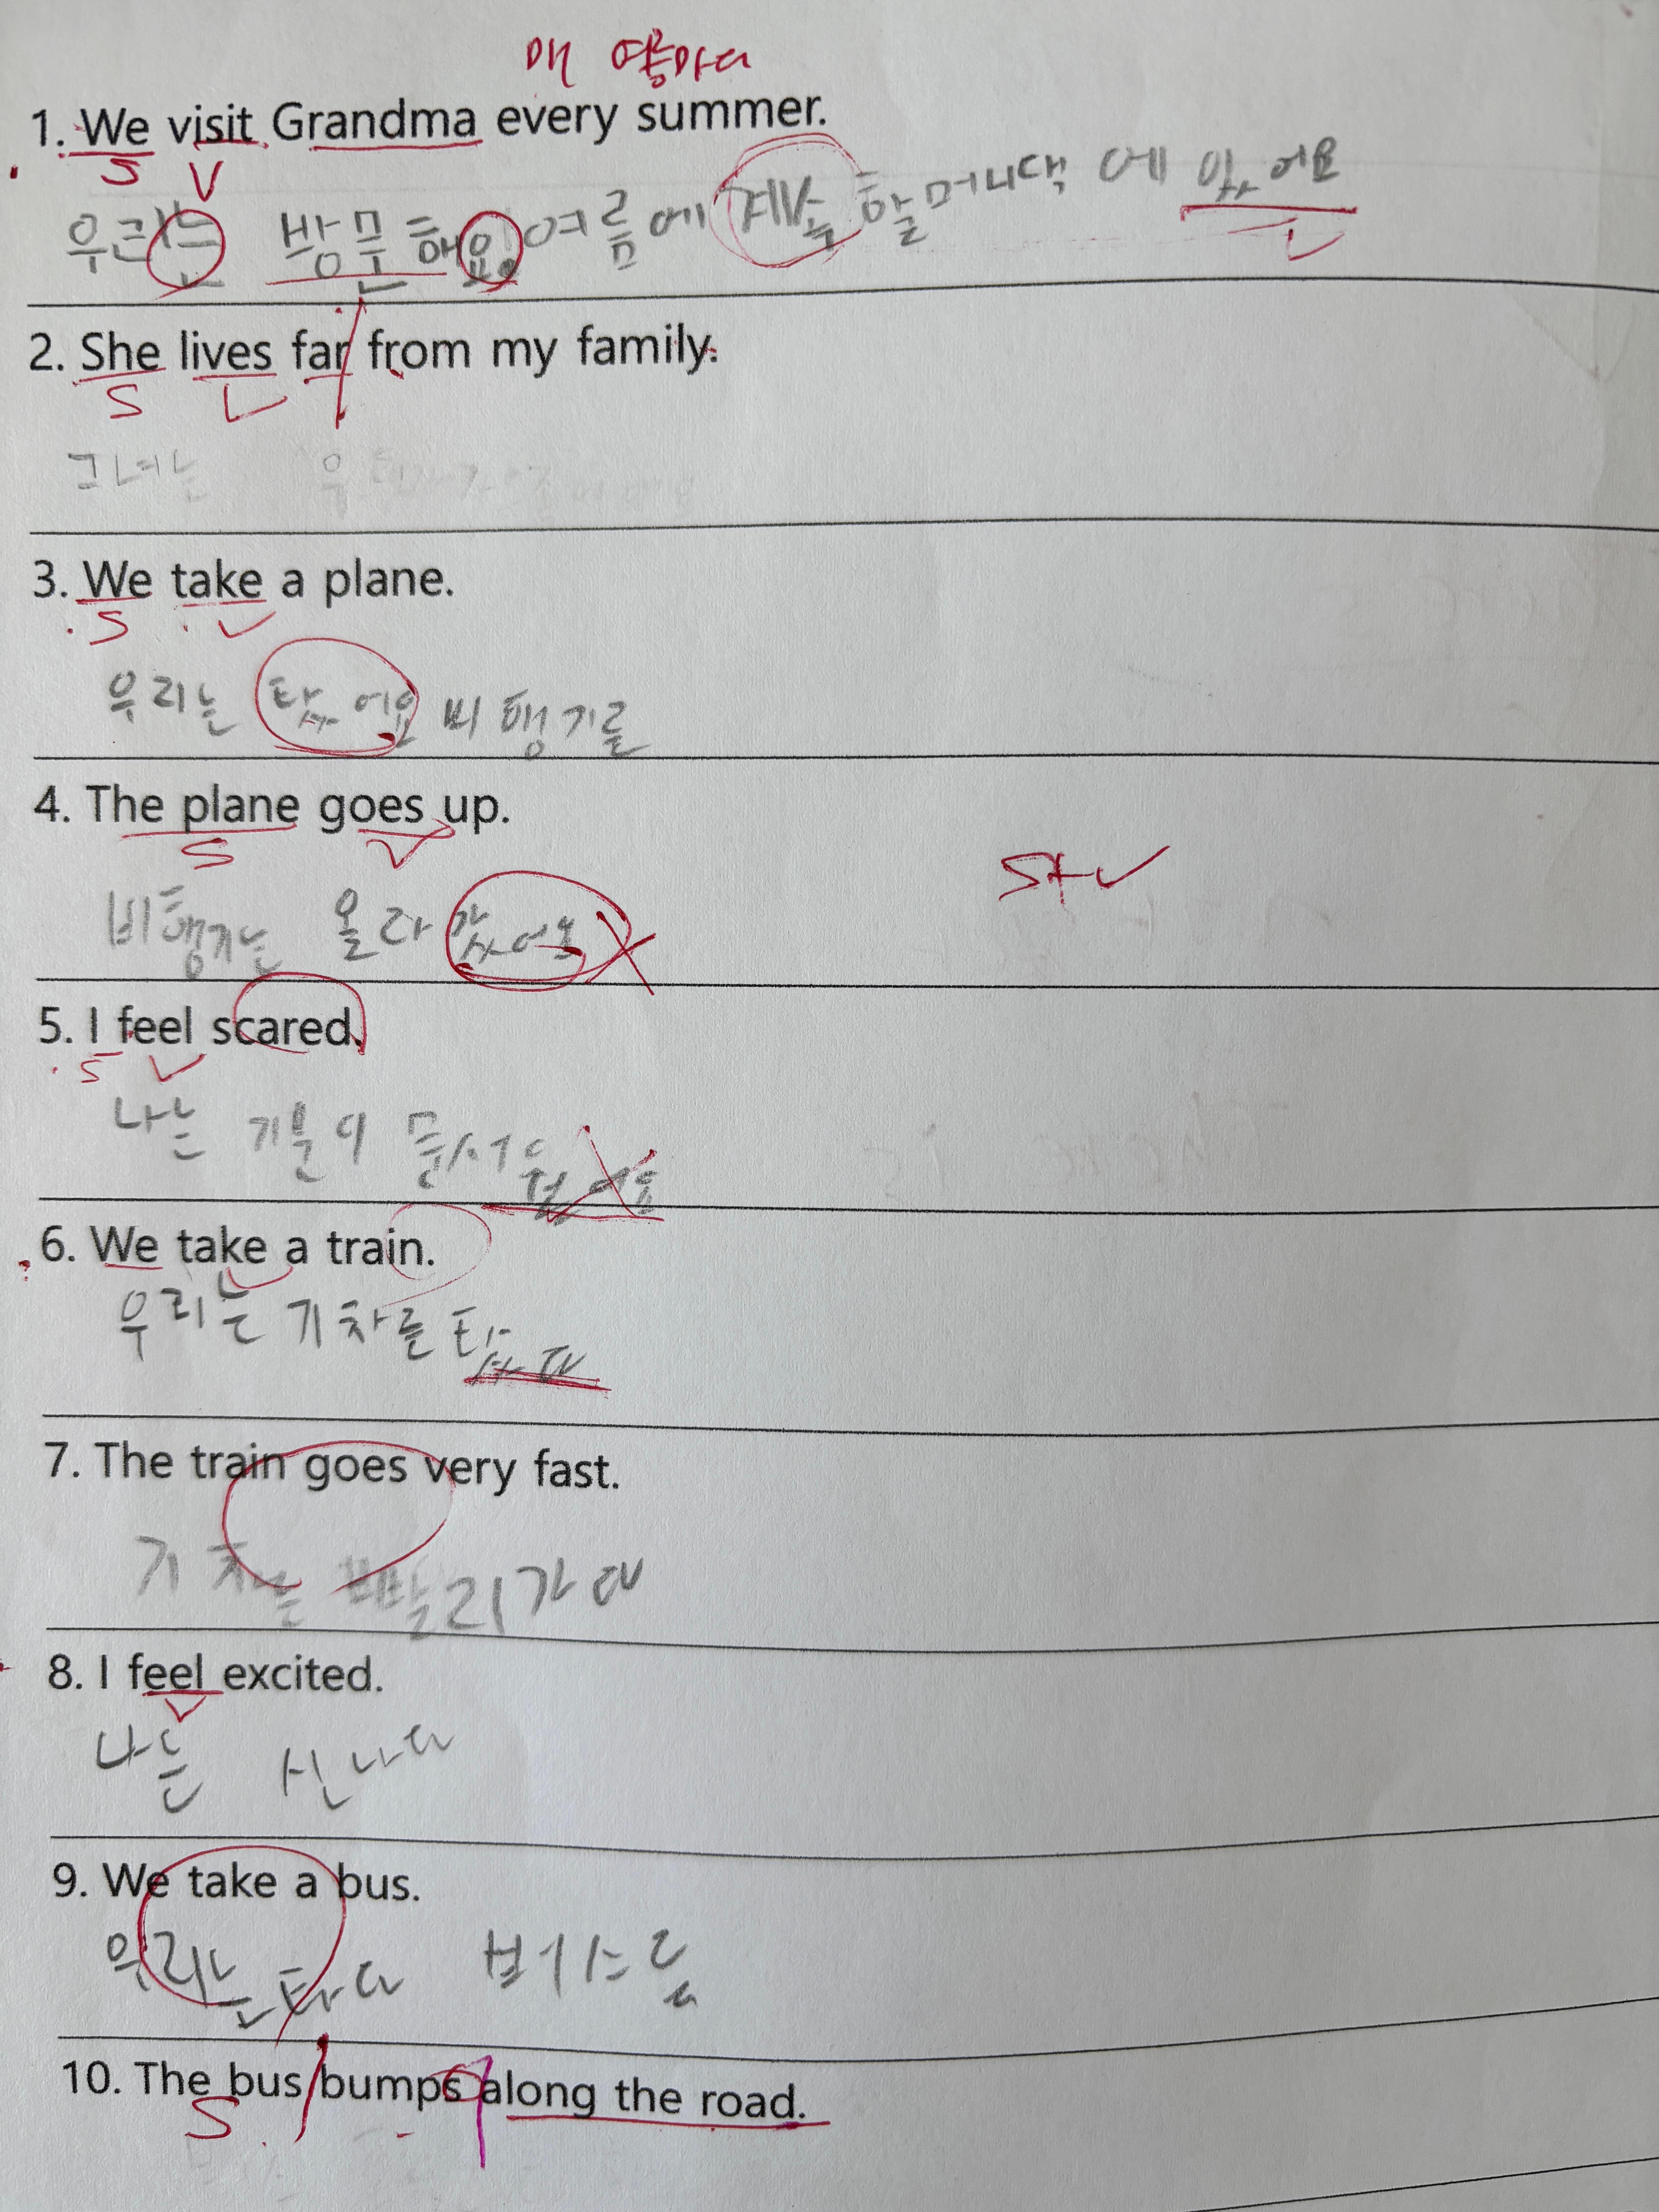 매 여름마다
1. We visit Grandma every summer.
S V
우리는 방문해요. 여름에 계속 할머니댁에 있어요
2. She lives far from my family.
S V
그녀는 우
3. We take a plane.
S V
우리는 탔어요 비행기를
4. The plane goes up.
S V
S+V
비행기는 올라갔어요
5. I feel scared.
S V
나는 기분이 무서웠어요
6. We take a train.
우리는 기차를 탔다
7. The train goes very fast.
기차는 빨리가다
8. I feel excited.
V
나는 신나다
9. We take a bus.
우리는 탄다 버스를
10. The bus bumps along the road.
S